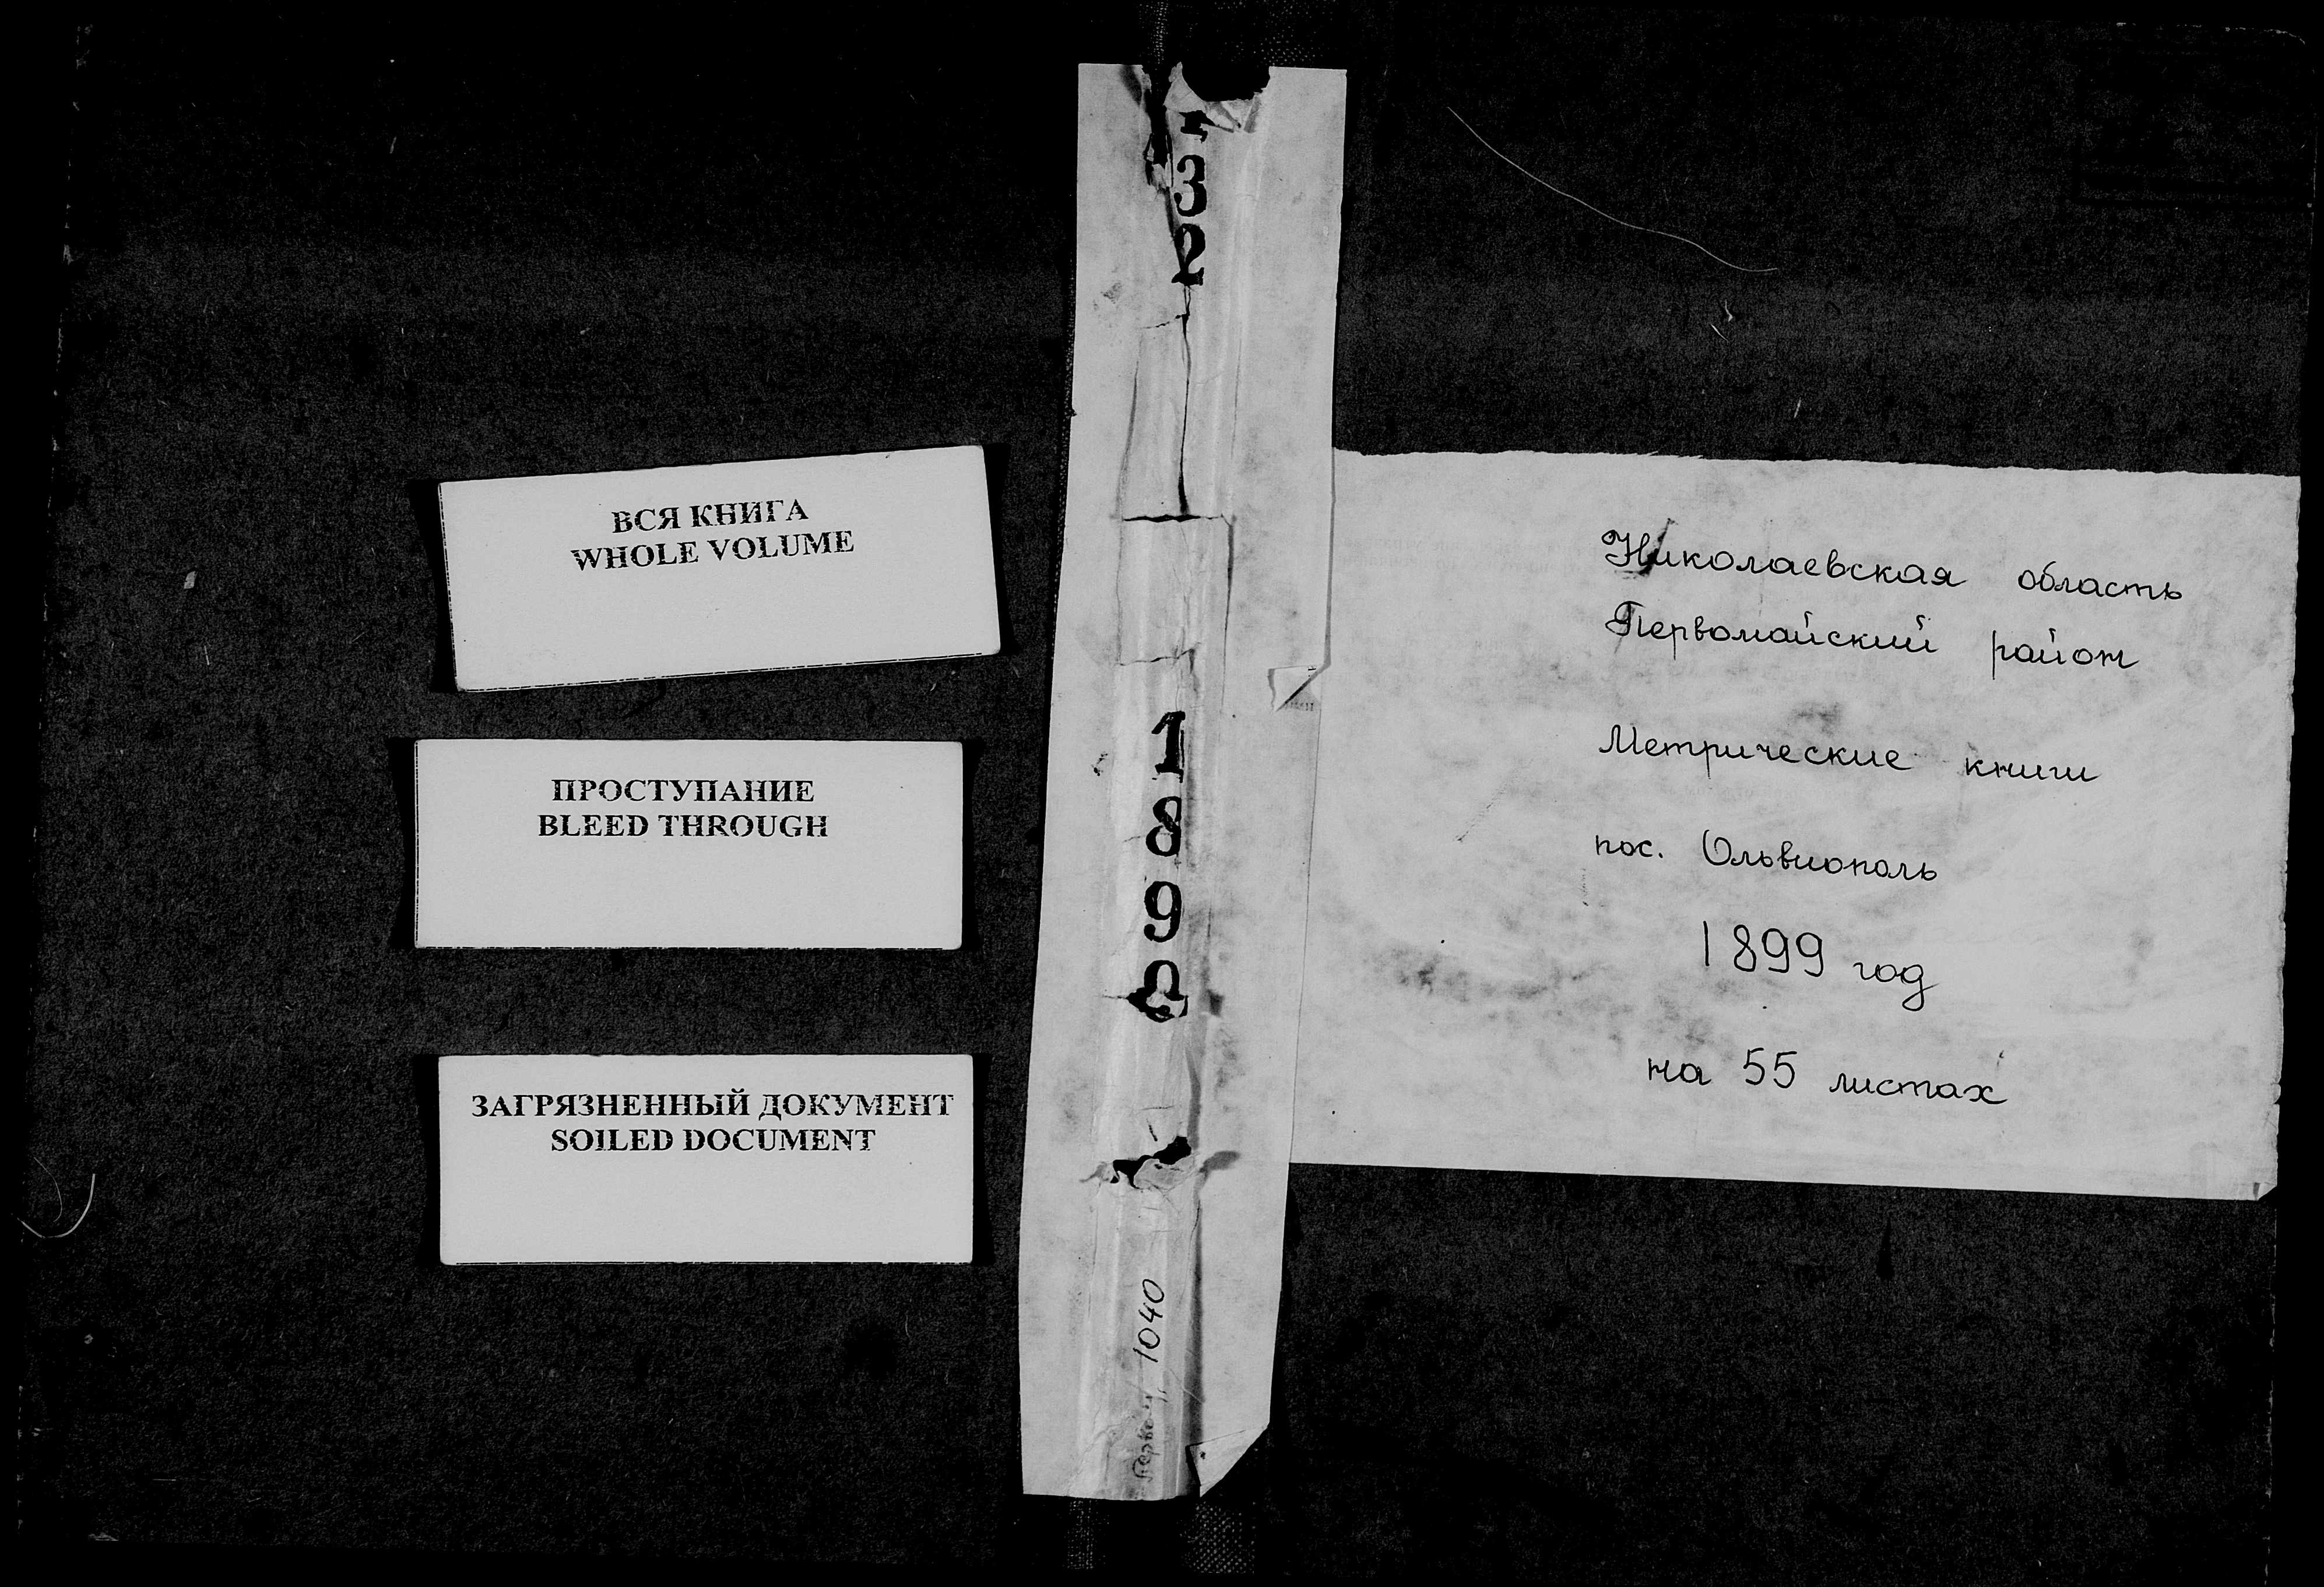 ВСЯ КНИГА
WHOLE VOLUME
ПРОСТУПАНИЕ
BLEED THROUGH
ЗАГРЯЗНЕННЫЙ ДОКУМЕНТ
SOILED DOCUMENT
32
189
1040
Николаевская область
Первомайский район
Метрические книги
пос. Ольвиополь
1899 год
на 55 листах